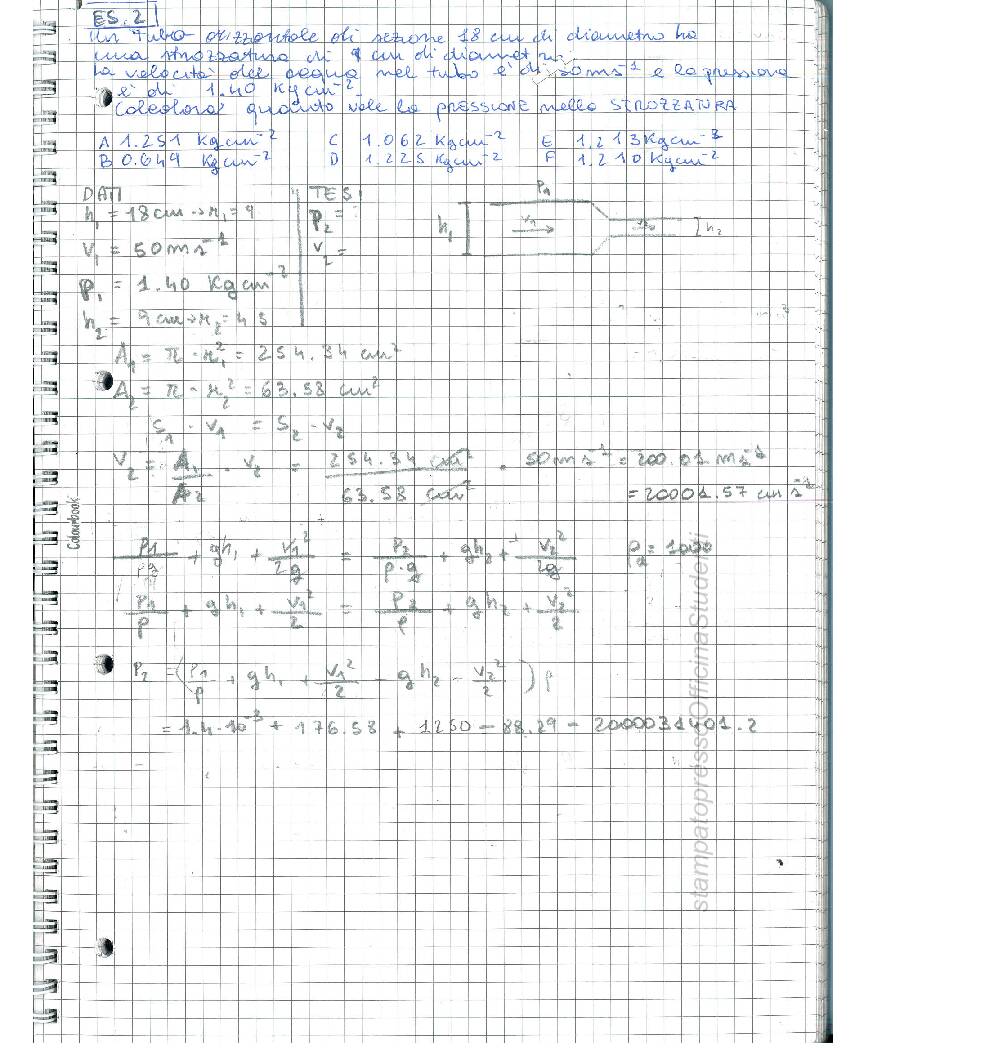 ES. 2
Un tubo orizzontale di sezione 18 cm di diametro ha
una strozzatura di 9 cm di diametro.
La velocità dell'acqua nel tubo è di 50 ms⁻¹ e la pressione
è di 1.40 Kg cm⁻².
Calcolare quanto vale la PRESSIONE nella STROZZATURA
A 1.251 Kgcm⁻² C 1.062 Kgcm⁻² E 1.213 Kgcm⁻³
B 0.649 Kgcm⁻² D 1.225 Kgcm⁻² F 1.210 Kgcm⁻²
DATI TESI
h₁ = 18 cm → r₁ = 9 P₂ =
V₁ = 50 ms⁻¹ V₂ =
P₁ = 1.40 Kg cm⁻²
h₂ = 9 cm → r₂ = 4.5
P₁ h₁ V₁ h₂
A₁ = π · r₁² = 254.34 cm²
A₂ = π · r₂² = 63.58 cm²
S₁ · V₁ = S₂ · V₂
V₂ = A₁/A₂ · V₂ = 254.34 cm²/63.58 cm² · 50 ms⁻¹ = 200.01 ms⁻¹
= 20001.57 cm s⁻¹
P₁/ρg + gh₁ + V₁²/2g = P₂/ρ·g + gh₂ + V₂²/2g = 1000
P₁/ρ + gh₁ + V₁²/2 = P₂/ρ + gh₂ + V₂²/2
P₂ = (P₁/ρ + gh₁ + V₁²/2 - gh₂ - V₂²/2) ρ
= 1.4·10⁻³ + 176.58 + 1250 - 88.29 - 2000031401.2
Colourbook
stampatopressoOfficinaStudenti